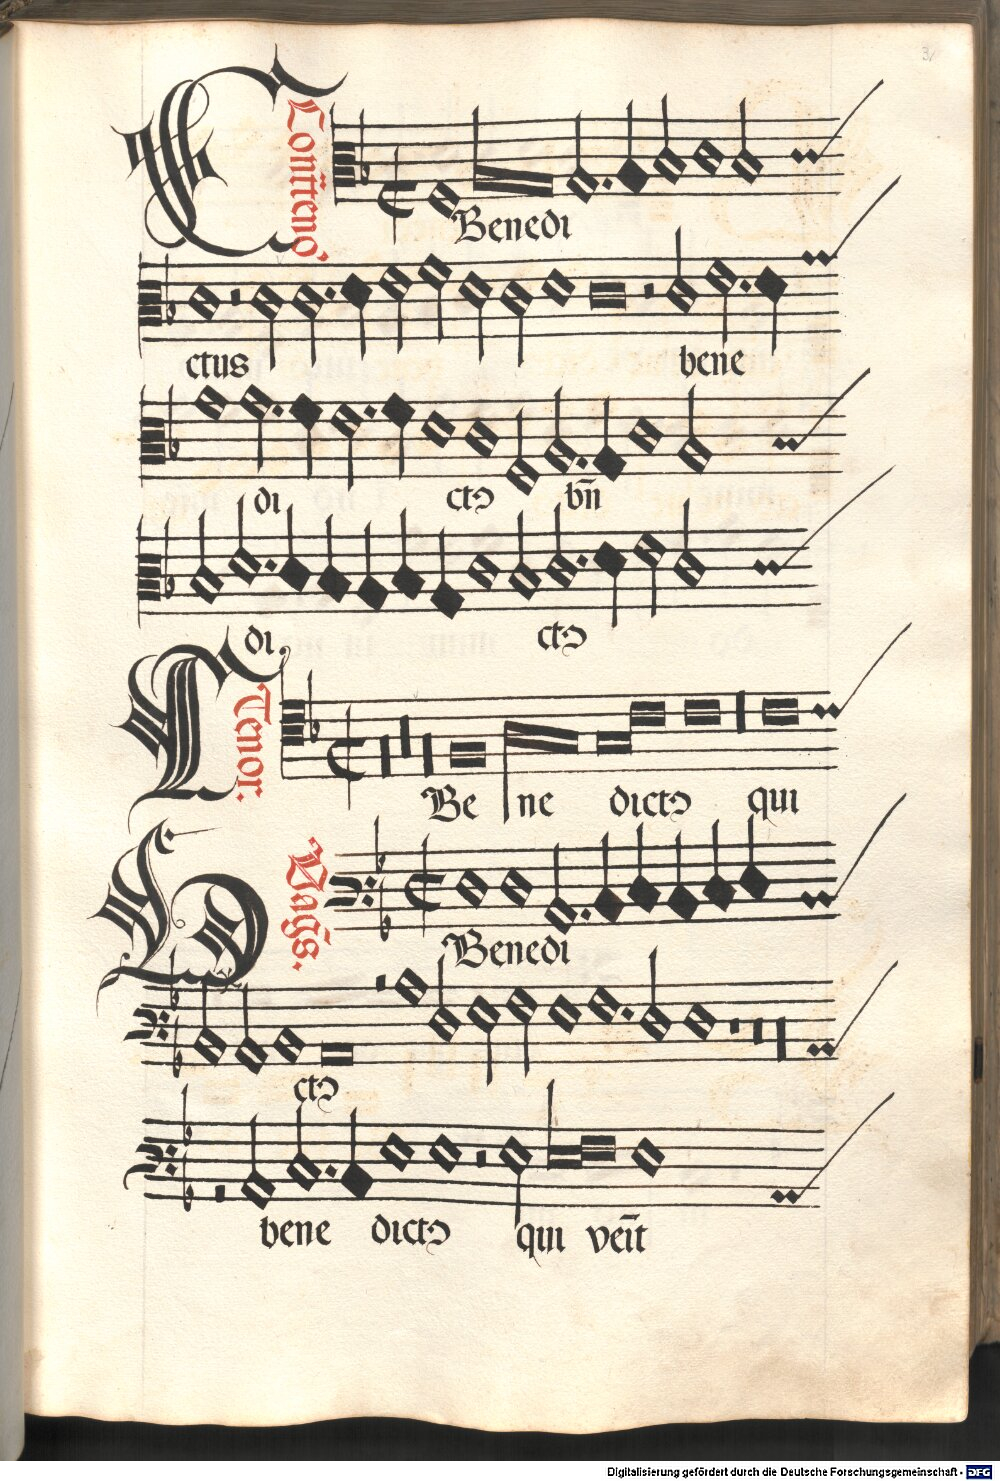 Benedi
ctus bene
di ctꝯ bn̄
di ctꝯ
Tenor.
Be ne dictꝯ qui
Vagꝰ.
Benedi
ctꝯ
bene dictꝯ qui veīt
Digitalisierung gefördert durch die Deutsche Forschungsgemeinschaft - DFG